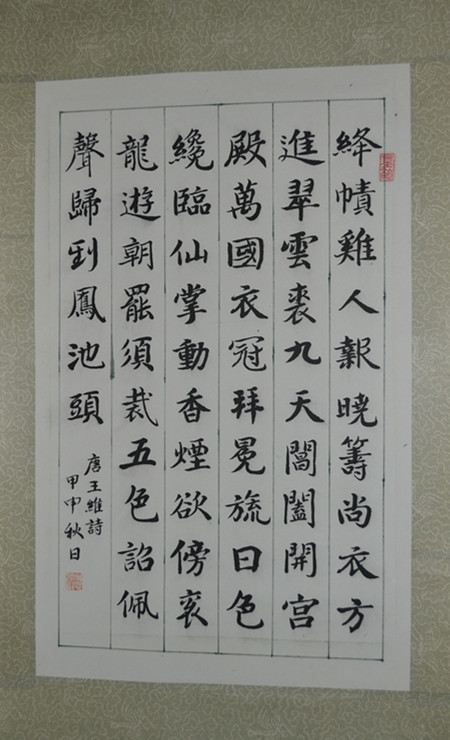 絳幘雞人報曉籌尚衣方
進翠雲裘九天閶闔開宮
殿萬國衣冠拜冕旒日色
纔臨仙掌動香煙欲傍袞
龍遊朝罷須裁五色詔佩
聲歸到鳳池頭
唐王維詩
甲申秋日